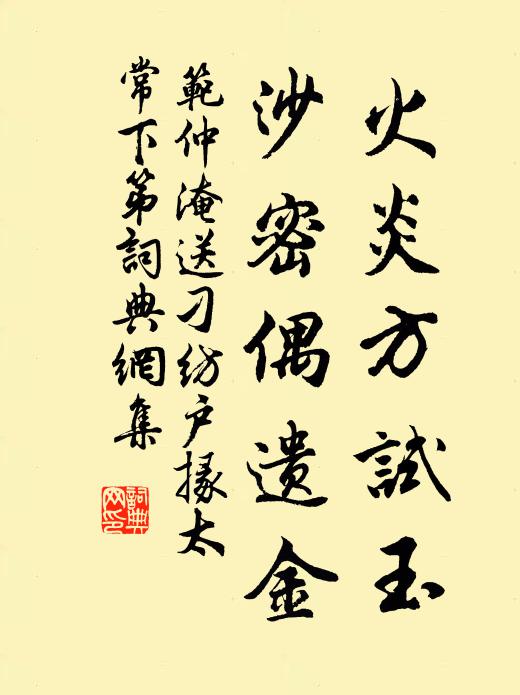 火炎方試玉
沙密偶遗金
範仲淹送刁紡户掾太
常下第詞典網集
詞典
网印